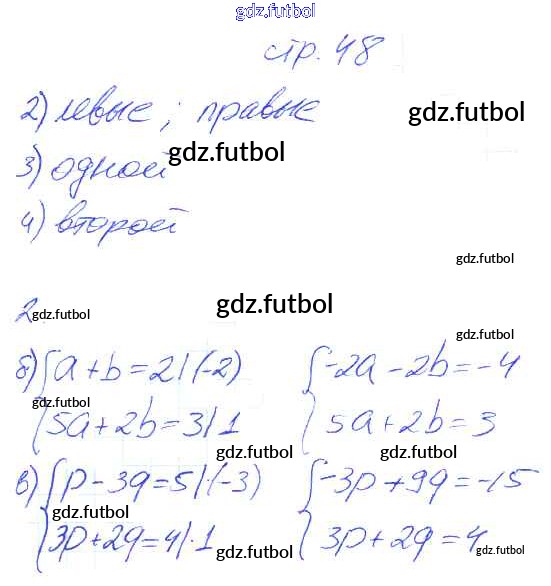 gdz.futbol
стр. 48
2) левые ; правые gdz.futbol
gdz.futbol
3) одной
4) второй
gdz.futbol
gdz.futbol
2. gdz.futbol
gdz.futbol
б) { a + b = 2 | (-2) { -2a - 2b = -4
gdz.futbol
5a + 2b = 3 | 1 5a + 2b = 3
gdz.futbol gdz.futbol
в) { p - 3q = 5 | ·(-3) { -3p + 9q = -15
gdz.futbol
3p + 2q = 4 | · 1 3p + 2q = 4
gdz.futbol gdz.futbol